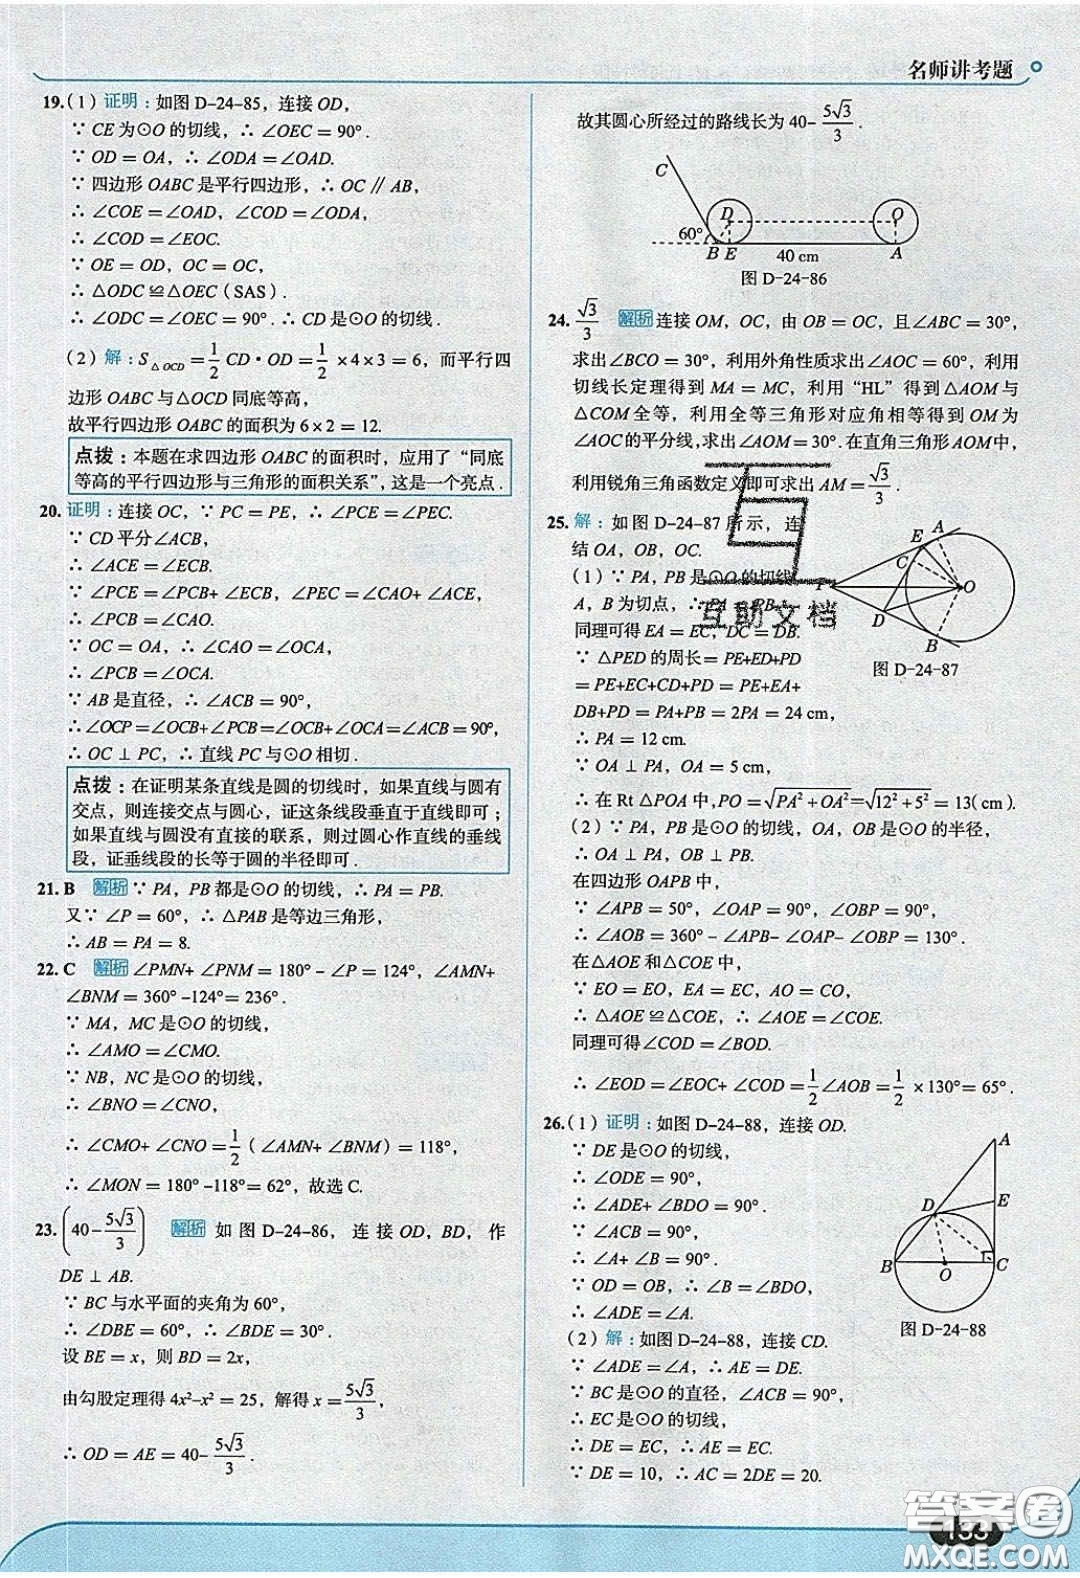 名师讲考题
19.(1)证明：如图 D-24-85，连接 OD，
∵ CE 为⊙O 的切线，∴ ∠OEC = 90°.
∵ OD = OA，∴ ∠ODA = ∠OAD.
∵ 四边形 OABC 是平行四边形，∴ OC ∥ AB，
∴ ∠COE = ∠OAD，∠COD = ∠ODA，
∴ ∠COD = ∠EOC.
∵ OE = OD，OC = OC，
∴ △ODC ≌ △OEC (SAS).
∴ ∠ODC = ∠OEC = 90°. ∴ CD 是⊙O 的切线.
(2)解：S△OCD = 1/2 CD·OD = 1/2 ×4×3 = 6，而平行四
边形 OABC 与△OCD 同底等高，
故平行四边形 OABC 的面积为 6×2 = 12.
点拨：本题在求四边形 OABC 的面积时，应用了“同底
等高的平行四边形与三角形的面积关系”，这是一个亮点.
20.证明：连接 OC，∵ PC = PE，∴ ∠PCE = ∠PEC.
∵ CD 平分∠ACB，
∴ ∠ACE = ∠ECB.
∵ ∠PCE = ∠PCB+ ∠ECB，∠PEC = ∠CAO+ ∠ACE，
∴ ∠PCB = ∠CAO.
∵ OC = OA，∴ ∠CAO = ∠OCA.
∴ ∠PCB = ∠OCA.
∵ AB 是直径，∴ ∠ACB = 90°，
∴ ∠OCP = ∠OCB+ ∠PCB = ∠OCB+ ∠OCA = ∠ACB = 90°，
∴ OC ⊥ PC，∴ 直线 PC 与⊙O 相切.
点拨：在证明某条直线是圆的切线时，如果直线与圆有
交点，则连接交点与圆心，证这条线段垂直于直线即可；
如果直线与圆没有直接的联系，则过圆心作直线的垂线
段，证垂线段的长等于圆的半径即可.
21. B 解析 ∵ PA，PB 都是⊙O 的切线，∴ PA = PB.
又∵ ∠P = 60°，∴ △PAB 是等边三角形，
∴ AB = PA = 8.
22. C 解析 ∠PMN+ ∠PNM = 180° - ∠P = 124°，∠AMN+
∠BNM = 360° -124° = 236°.
∵ MA，MC 是⊙O 的切线，
∴ ∠AMO = ∠CMO.
∵ NB，NC 是⊙O 的切线，
∴ ∠BNO = ∠CNO，
∴ ∠CMO+ ∠CNO = 1/2 (∠AMN+ ∠BNM) = 118°，
∴ ∠MON = 180° -118° = 62°，故选 C.
23. (40- 5√3/3) 解析 如图 D-24-86，连接 OD，BD，作
DE ⊥ AB.
∵ BC 与水平面的夹角为 60°，
∴ ∠DBE = 60°，∴ ∠BDE = 30°.
设 BE = x，则 BD = 2x，
由勾股定理得 4x²-x² = 25，解得 x = 5√3/3，
∴ OD = AE = 40- 5√3/3.
故其圆心所经过的路线长为 40- 5√3/3.
C
D
O
60°
B E
40 cm
A
图 D-24-86
24. √3/3 解析 连接 OM，OC，由 OB = OC，且∠ABC = 30°，
求出∠BCO = 30°，利用外角性质求出∠AOC = 60°，利用
切线长定理得到 MA = MC，利用“HL”得到△AOM 与
△COM 全等，利用全等三角形对应角相等得到 OM 为
∠AOC 的平分线，求出∠AOM = 30°. 在直角三角形 AOM 中，
利用锐角三角函数定义即可求出 AM = √3/3.
25.解：如图 D-24-87 所示，连
结 OA，OB，OC.
(1) ∵ PA，PB 是⊙O 的切线，
A，B 为切点，∴ PA = PB.
同理可得 EA = EC，DC = DB.
∵ △PED 的周长 = PE+ED+PD
= PE+EC+CD+PD = PE+EA+
DB+PD = PA+PB = 2PA = 24 cm，
∴ PA = 12 cm.
∵ OA ⊥ PA，OA = 5 cm，
∴ 在 Rt △POA 中，PO = √(PA² + OA²) = √(12² + 5²) = 13(cm).
(2) ∵ PA，PB 是⊙O 的切线，OA，OB 是⊙O 的半径，
∴ OA ⊥ PA，OB ⊥ PB.
在四边形 OAPB 中，
∵ ∠APB = 50°，∠OAP = 90°，∠OBP = 90°，
∴ ∠AOB = 360° - ∠APB- ∠OAP- ∠OBP = 130°.
在△AOE 和△COE 中，
∵ EO = EO，EA = EC，AO = CO，
∴ △AOE ≌ △COE，∴ ∠AOE = ∠COE.
同理可得∠COD = ∠BOD.
∴ ∠EOD = ∠EOC+ ∠COD = 1/2 ∠AOB = 1/2 ×130° = 65°.
E A
C
P
O
D
B
图 D-24-87
26.(1)证明：如图 D-24-88，连接 OD.
∵ DE 是⊙O 的切线，
∴ ∠ODE = 90°，
∴ ∠ADE+ ∠BDO = 90°.
∵ ∠ACB = 90°，
∴ ∠A+ ∠B = 90°.
∵ OD = OB，∴ ∠B = ∠BDO，
∴ ∠ADE = ∠A.
(2)解：如图 D-24-88，连接 CD.
∵ ∠ADE = ∠A，∴ AE = DE.
∵ BC 是⊙O 的直径，∠ACB = 90°，
∴ EC 是⊙O 的切线，
∴ DE = EC，∴ AE = EC.
∵ DE = 10，∴ AC = 2DE = 20.
A
D
E
B
O
C
图 D-24-88
互助文档
133
答案圈
MXQE.COM